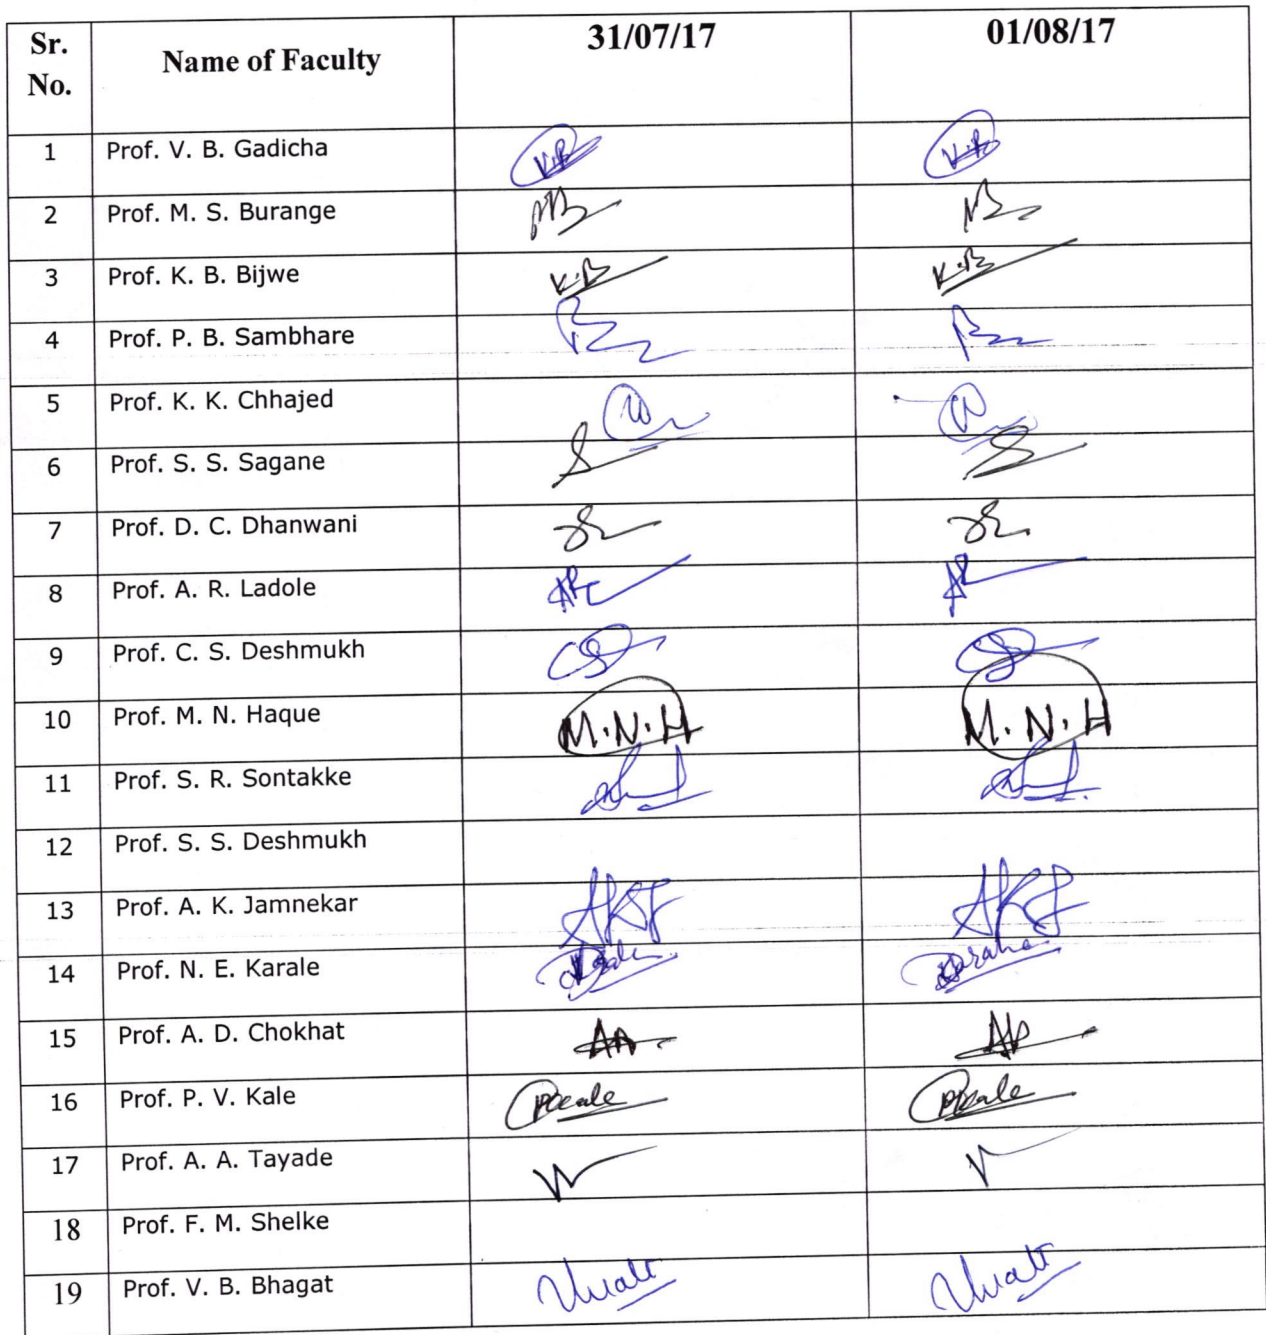 Sr. No. Name of Faculty 31/07/17 01/08/17
1 Prof. V. B. Gadicha
2 Prof. M. S. Burange
3 Prof. K. B. Bijwe K.B K.B
4 Prof. P. B. Sambhare
5 Prof. K. K. Chhajed
6 Prof. S. S. Sagane
7 Prof. D. C. Dhanwani
8 Prof. A. R. Ladole
9 Prof. C. S. Deshmukh
10 Prof. M. N. Haque M.N.H M.N.H
11 Prof. S. R. Sontakke
12 Prof. S. S. Deshmukh
13 Prof. A. K. Jamnekar
14 Prof. N. E. Karale
15 Prof. A. D. Chokhat
16 Prof. P. V. Kale
17 Prof. A. A. Tayade
18 Prof. F. M. Shelke
19 Prof. V. B. Bhagat